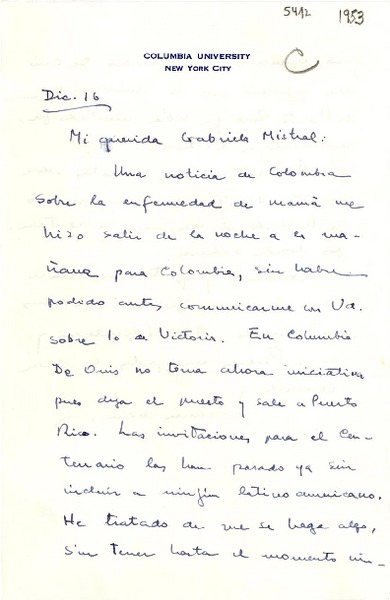 5412 1953
C
COLUMBIA UNIVERSITY
NEW YORK CITY
Dic. 16
Mi querida Gabriela Mistral:
Una noticia de Colombia
sobre la enfermedad de mamá me
hizo salir de la noche a la ma-
ñana para Colombia, sin haber
podido antes comunicarme con Vd.
sobre lo de Victoria. En Columbia
De Onis no toma ahora iniciativa
pues deja el puesto y sale a Puerto
Rico. Las invitaciones para el Cen-
tenario las han pasado ya sin
incluir a ningún latino americano.
He tratado de que se haga algo,
sin tener hasta el momento nin-